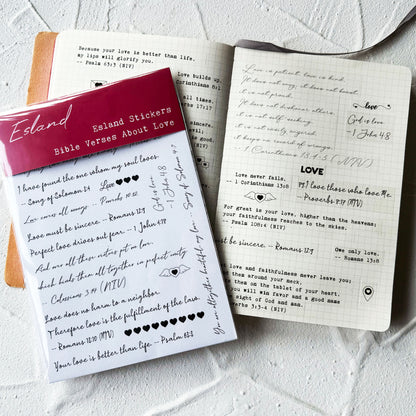 Because your love is better than life,
my lips will glorify you.
-- Psalm 63:3 (NIV)
Love builds up.
all times.
17:17
Esland
Esland Stickers
Bible Verses About Love
I have found the one whom my soul loves.
-- Song of Solomon 3:4
Love
Love covers all wrongs. -- Proverbs 10:12
God is love
-- 1 John 4:8
Love must be sincere. -- Romans 12:9
Perfect love drives out fear. -- 1 John 4:18
And over all these virtues put on love,
which binds them all together in perfect unity.
-- Colossians 3:14 (NIV)
Love does no harm to a neighbor.
Therefore love is the fulfillment of the law.
-- Romans 13:10 (NIV)
Your love is better than life. -- Psalm 63:3
You are altogether beautiful, my love. -- Song of Solomon 4:7
Love is patient, love is kind.
It does not envy, it does not boast,
it is not proud.
It does not dishonor others,
it is not self-seeking,
it is not easily angered,
it keeps no record of wrongs.
1 Corinthians 13:4-5 (NIV)
love
God is love
-- 1 John 4:8
LOVE
Love never fails.
-- 1 Corinthians 13:8
I love those who love me.
-- Proverbs 8:17 (NIV)
For great is your love, higher than the heavens;
your faithfulness reaches to the skies.
must be sincere. -- Romans 12:9
Owe only love.
-- Romans 13:8
love and faithfulness never leave you;
them around your neck,
them on the tablet of your heart.
you will win favor and a good name
sight of God and man.
3:3-4 (NIV)